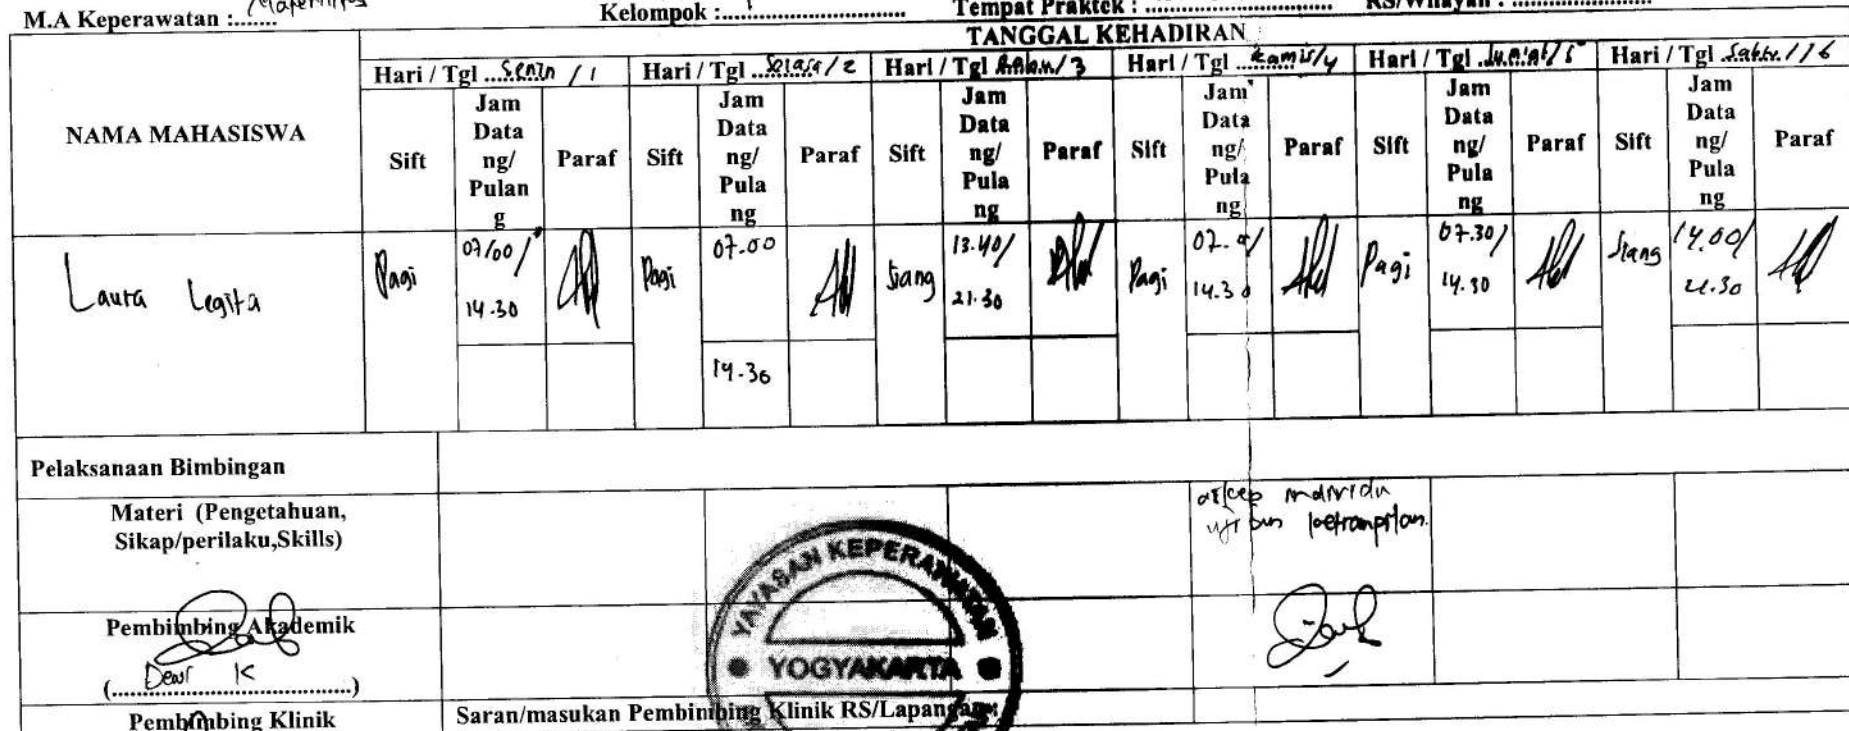 M.A Keperawatan :....... Maternitas Kelompok :............................ Tempat Praktek : ............................ RS/Wilayah : ......................
TANGGAL KEHADIRAN
NAMA MAHASISWA
Hari / Tgl ...Senin / 1 Hari / Tgl ...Selasa / 2 Hari / Tgl Rabu / 3 Hari / Tgl ...Kamis/4 Hari / Tgl ..Jum'at/5 Hari / Tgl .Sabtu / 6
Sift Jam Data ng/ Pulan g Paraf Sift Jam Data ng/ Pula ng Paraf Sift Jam Data ng/ Pula ng Paraf Sift Jam Data ng/ Pula ng Paraf Sift Jam Data ng/ Pula ng Paraf Sift Jam Data ng/ Pula ng Paraf
Laura Legita Pagi 07/00/ Pagi 07.00 Siang 13.40/ Pagi 07. Pagi 07.30/ Siang 14.00/
14.30 21.30 14.30 14.30 21.30
14.30
Pelaksanaan Bimbingan
Materi (Pengetahuan,
Sikap/perilaku,Skills)
askep individu
ujian ketrampilan.
YAYASAN KEPERAWATAN
YOGYAKARTA
Pembimbing Akademik
Dewi K
(....................................)
Pembimbing Klinik Saran/masukan Pembimbing Klinik RS/Lapangan :